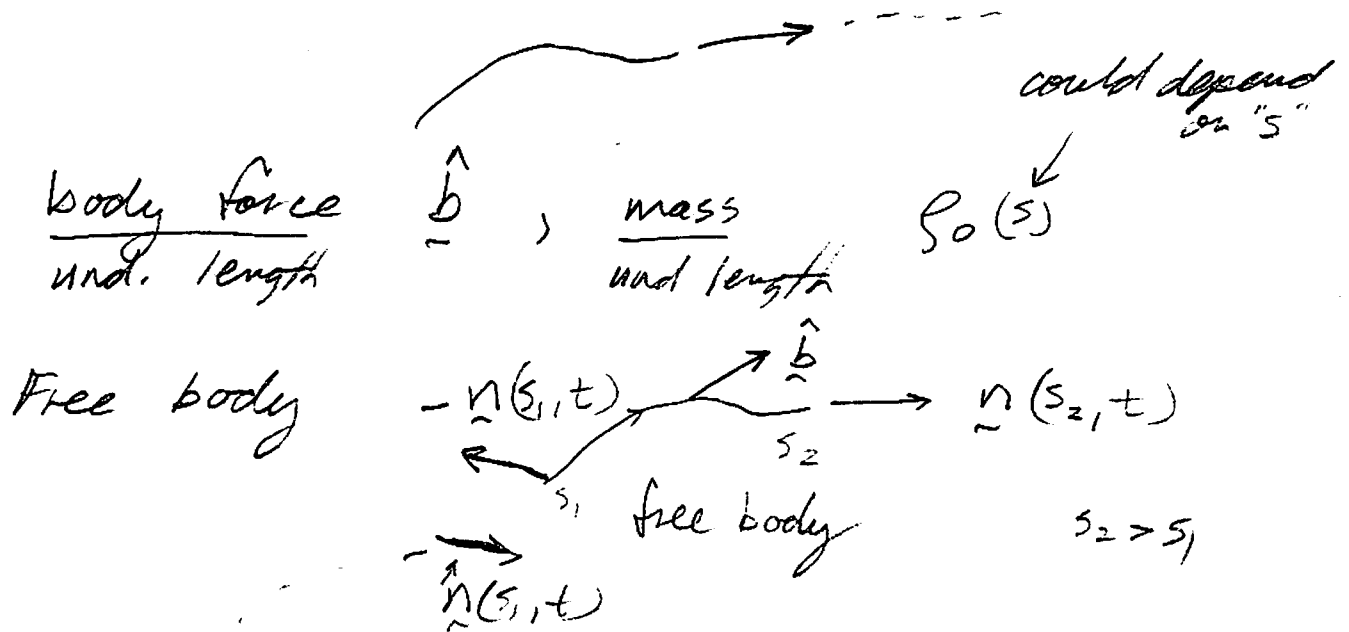 could depend
on "s"
body force / und. length b̂ , mass / und length ρ₀(s)
Free body - n(s₁,t) b̂ n(s₂,t)
s₂
s₁ free body s₂ > s₁
- n(s₁,t)